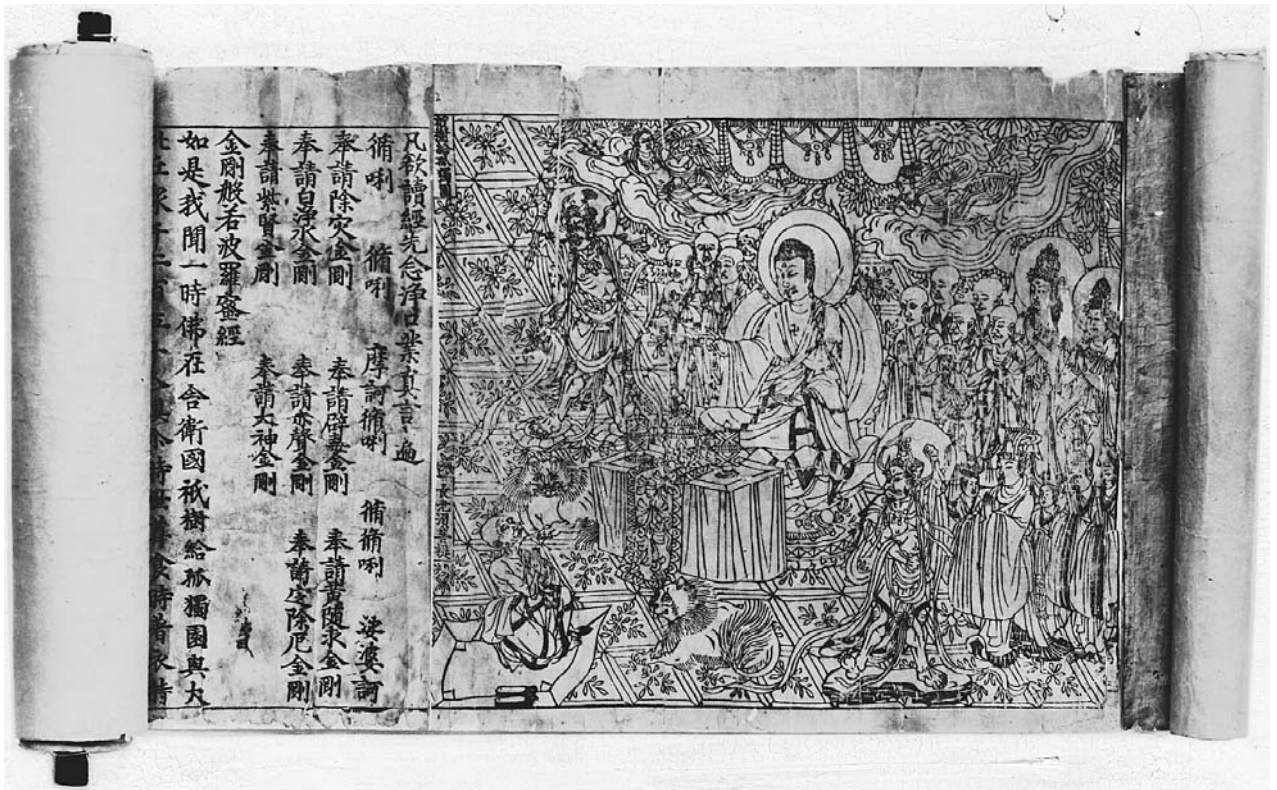 長老須菩提
凡欲讀經先念淨口業真言遍
脩唎 脩唎 摩訶脩唎 脩脩唎 娑婆訶
奉請除灾金剛 奉請辟毒金剛 奉請黃隨求金剛
奉請白淨水金剛 奉請赤聲金剛 奉請定除厄金剛
奉請紫賢金剛 奉請大神金剛
金剛般若波羅蜜經
如是我聞一時佛在舍衛國祇樹給孤獨園與大
食時著衣持